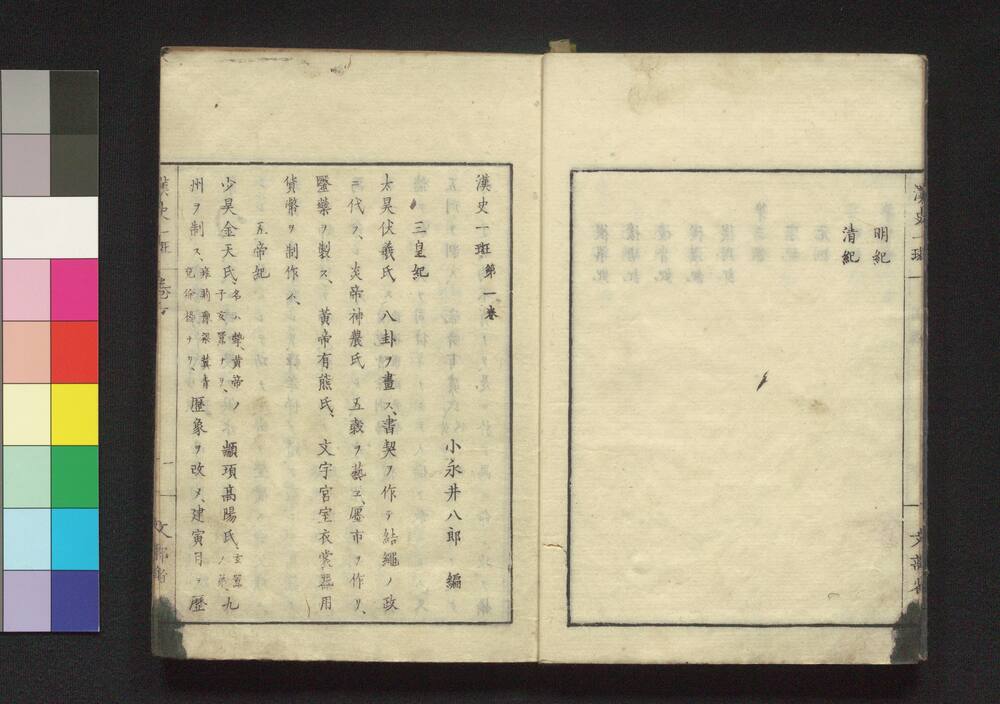 明紀
清紀
漢史一班
文部省
漢史一班 第一巻
小永井八郎 編
三皇紀
太昊伏羲氏、八卦ヲ畫ス、書契ヲ作テ結繩ノ政
ニ代フ、炎帝神農氏 五穀ヲ藝エ、廛市ヲ作リ、
醫藥ヲ製ス、黃帝有熊氏、文字宮室衣裳器用
貨幣ヲ制作ス、
五帝紀
少昊金天氏、名ハ摯、黃帝ノ子玄囂ナリ、顓頊高陽氏、玄囂ノ弟、九
州ヲ制ス、雍荊豫梁冀青兗徐揚ナリ、歷象ヲ改メ、建寅月ヲ歷
漢史一班
文部省